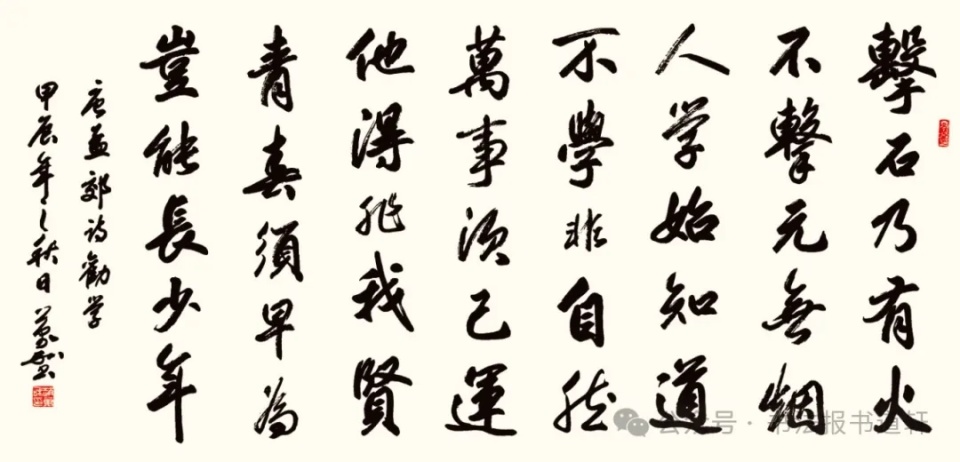 擊石乃有火
不擊元無烟
人学始知道
不學非自然
萬事須己運
他得非我賢
青春須早為
豈能長少年
唐孟郊诗勸学
甲辰年之秋日
公众号·书法报书道轩